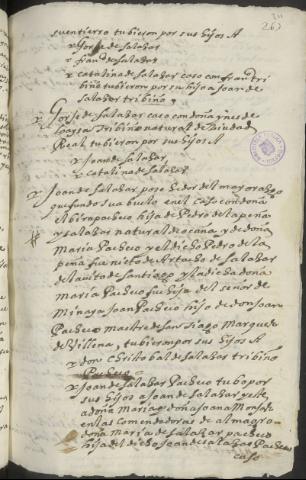 267
su entierro tubieron por sus hijos A
Jorge de salazar
franco de salazar
catalina de salazar caso con franco tri
biño tubieron por su hijo a Joan de
salazar tribiño
Jorge de salazar caso con doña ynes de
loaysa tribiño natural de ciudad
Real tubieron por sus hijos A
Joan de salazar
catalina de salazar
Joan de salazar posehedor del mayorazgo
que fundo su buelo en el caso con doña
elbira pacheco hija de Pedro de la peña
y salazar natural de ocaña y de doña
Maria Pacheco y el dicho Pedro de la
peña fue nieto de Artucho de salazar
del auito de santiago y la dicha doña
maria Pacheco fue hija del señor de
Minaya Joan Pacheco hijo de don Joan
Pacheco maestre de san tiago Marques
de Villena, tubieron por sus hijos A
don christobal de salazar tribiño
Pacheco
Joan de salazar Pacheco tubo por
sus hijos a Joan de salazar yste
a doña Maria y doña Joana Monjas
en las comendadoras de almagro
doña Maria de salazar pacheco
hija del dicho Joan de salazar Pacheco
caso